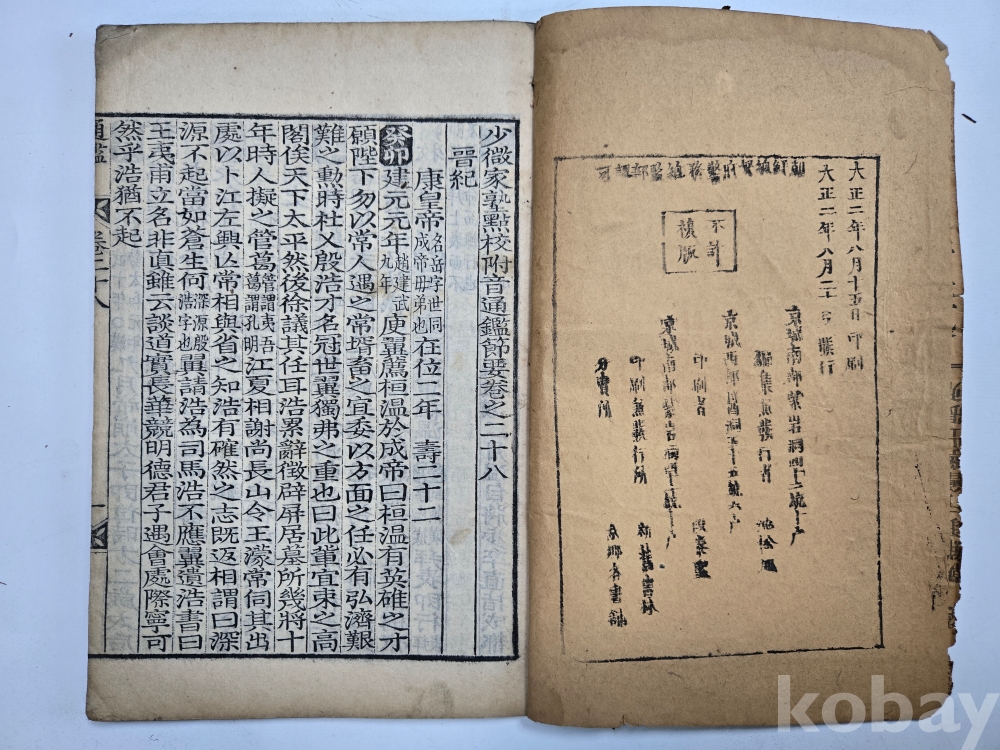 大正二年八月十五日印刷
大正二年八月二十日發行
不許
複版
京城南部
洞四十二統十戶
編集兼發行者
京城西部
印刷者
京城南部
印刷兼發行所 新舊書林
分賣所 各書舖
少微家塾點校附音通鑑節要卷之二十八
晉紀
康皇帝名岳字世同成帝母弟也在位二年 壽二十二
癸卯建元元年趙建武九年庾翼薦桓溫於成帝曰桓溫有英雄之才
願陛下勿以常人遇之常壻畜之宜委以方面之任必有弘濟艱
難之勳時杜乂殷浩才名冠世翼獨弗之重也曰此輩宜束之高
閣俟天下太平然後徐議其任耳浩累辭徵辟屏居墓所幾將十
年時人擬之管葛管謂夷吾葛謂孔明江夏相謝尚長山令王濛常伺其出
處以卜江左興亡常相與省之知浩有確然之志既返相謂曰深
源不起當如蒼生何深源殷浩字也翼請浩為司馬浩不應翼遺浩書曰
王夷甫立名非眞雖云談道實長華競明德君子遇會處際寧可
然乎浩猶不起
通鑑 卷二十八
kobay